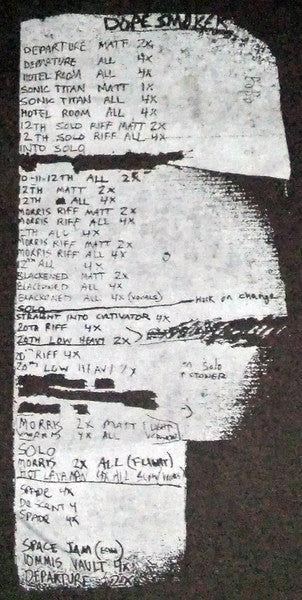 DOPESMOKER
DEPARTURE MATT 2X
DEPARTURE ALL 4X
HOTEL ROOM ALL 4X
SONIC TITAN MATT 1X
SONIC TITAN ALL 4X
HOTEL ROOM ALL 4X
12TH SOLO RIFF MATT 2X
12TH SOLO RIFF ALL 4X
INTO SOLO
10-11-12TH ALL 2X
12TH MATT 2X
12TH ALL 4X
MORRIS RIFF MATT 2X
MORRIS RIFF ALL 4X
12TH ALL 4X
MORRIS RIFF MATT 2X
MORRIS RIFF ALL 4X
12TH ALL 4X
BLACKENED MATT 2X
BLACKENED ALL 4X
BLACKENED ALL 4X (VOCALS)
SOLO Hook on change
STRAIGHT INTO CULTIVATOR 4X
20TH RIFF 4X
20TH LOW HEAVY 2X
20TH RIFF 4X
20TH LOW HEAVY 2X
Solo
MORRIS 2X MATT (LIGHT)
4X ALL
SOLO
MORRIS 2X ALL (FLURRY)
HOT LAVA MAN 4X ALL
SPADE 4X
DESCENT 4
SPADE 4X
SPACE JAM
IOMMIS VAULT 4X
DEPARTURE 2X